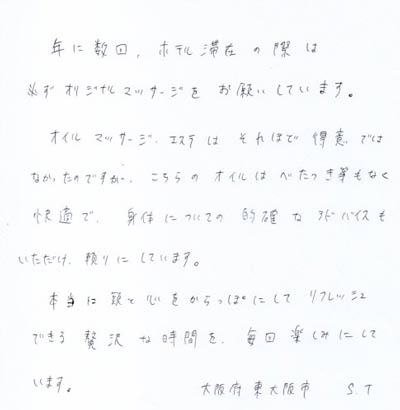 年に数回、ホテル滞在の際は
必ずオリジナルマッサージをお願いしています。
オイルマッサージ、エステはそれほど得意では
なかったのですが、こちらのオイルはべたつき等もなく
快適で、身体についての的確なアドバイスも
いただけ、頼りにしています。
本当に頭と心をからっぽにしてリフレッシュ
できる贅沢な時間を、毎回楽しみにして
います。
大阪府東大阪市 S.T